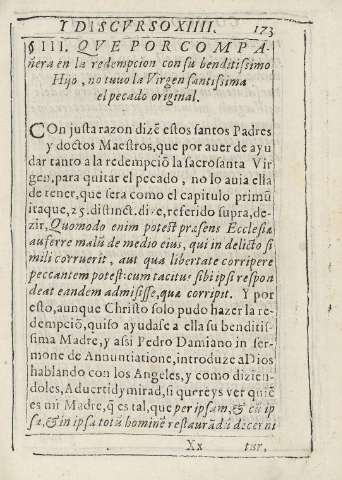 Y DISCVRSO XIIII. 173
§ III. QVE POR COMPA
ñera en la redempcion con su benditissimo
Hijo, no tuuo la Virgen santissima
el pecado original.
COn justa razon dizẽ estos santos Padres
y doctos Maestros, que por auer de ayu
dar tanto a la redempciõ la sacrosanta Vir
gen, para quitar el pecado, no lo auia ella
de tener, que sera como el capitulo primũ
itaque, 25. distinct. dize, referido supra, de-
zir, Quomodo enim potest præsens Ecclesia
auferre malũ de medio eius, qui in delicto si
mili corruerit, aut qua libertate corripere
peccantem potest: cum tacitus sibi ipsi respon
deat eandem admisisse, quæ corripit. Y por
esto, aunque Christo solo pudo hazer la re-
dempciõ, quiso ayudase a ella su benditis-
sima Madre, y assi Pedro Damiano in ser-
mone de Annuntiatione, introduze a Dios
hablando con los Angeles, y como diziẽn-
doles, Aduertid y mirad, si quereys ver quiẽ
es mi Madre, q̃ es tal, que per ipsam, & cũ ip
sa, & in ipsa totũ hominẽ restaurãdũ decerni
Xx tur,